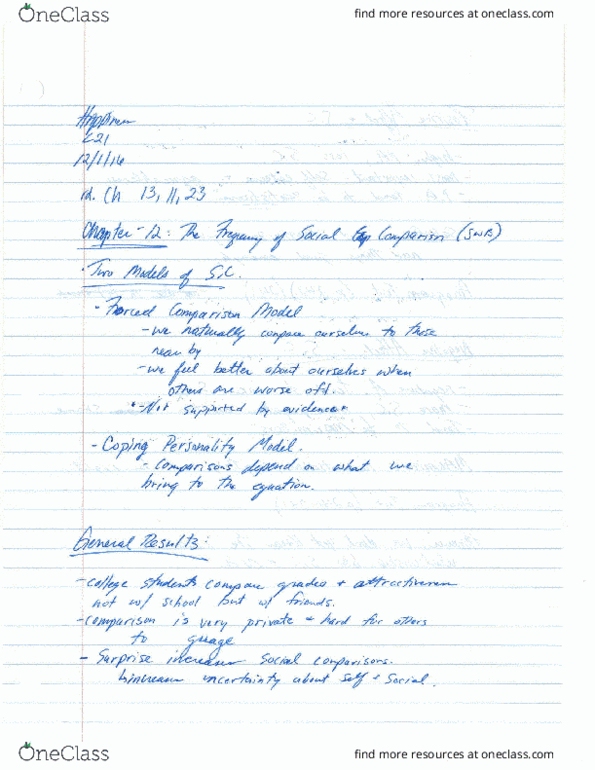 OneClass
find more resources at oneclass.com
Happiness
L21
12/1/16
rd. Ch 13, 11, 23
Chapter-12: The Frequency of Social Comparison (SWB)
· Two Models of S.C.
- Forced Comparison Model
- we naturally compare ourselves to those
near by
- we feel better about ourselves when
others are worse off.
*- Not supported by evidence*
- Coping Personality Model.
- Comparisons depend on what we
bring to the equation.
General Results:
- college students compare grades + attractiveness
not w/ school but w/ friends.
- comparison is very private + hard for others
to guage
- Surprise increases Social comparisons.
increases uncertainty about self + social.
OneClass
find more resources at oneclass.com